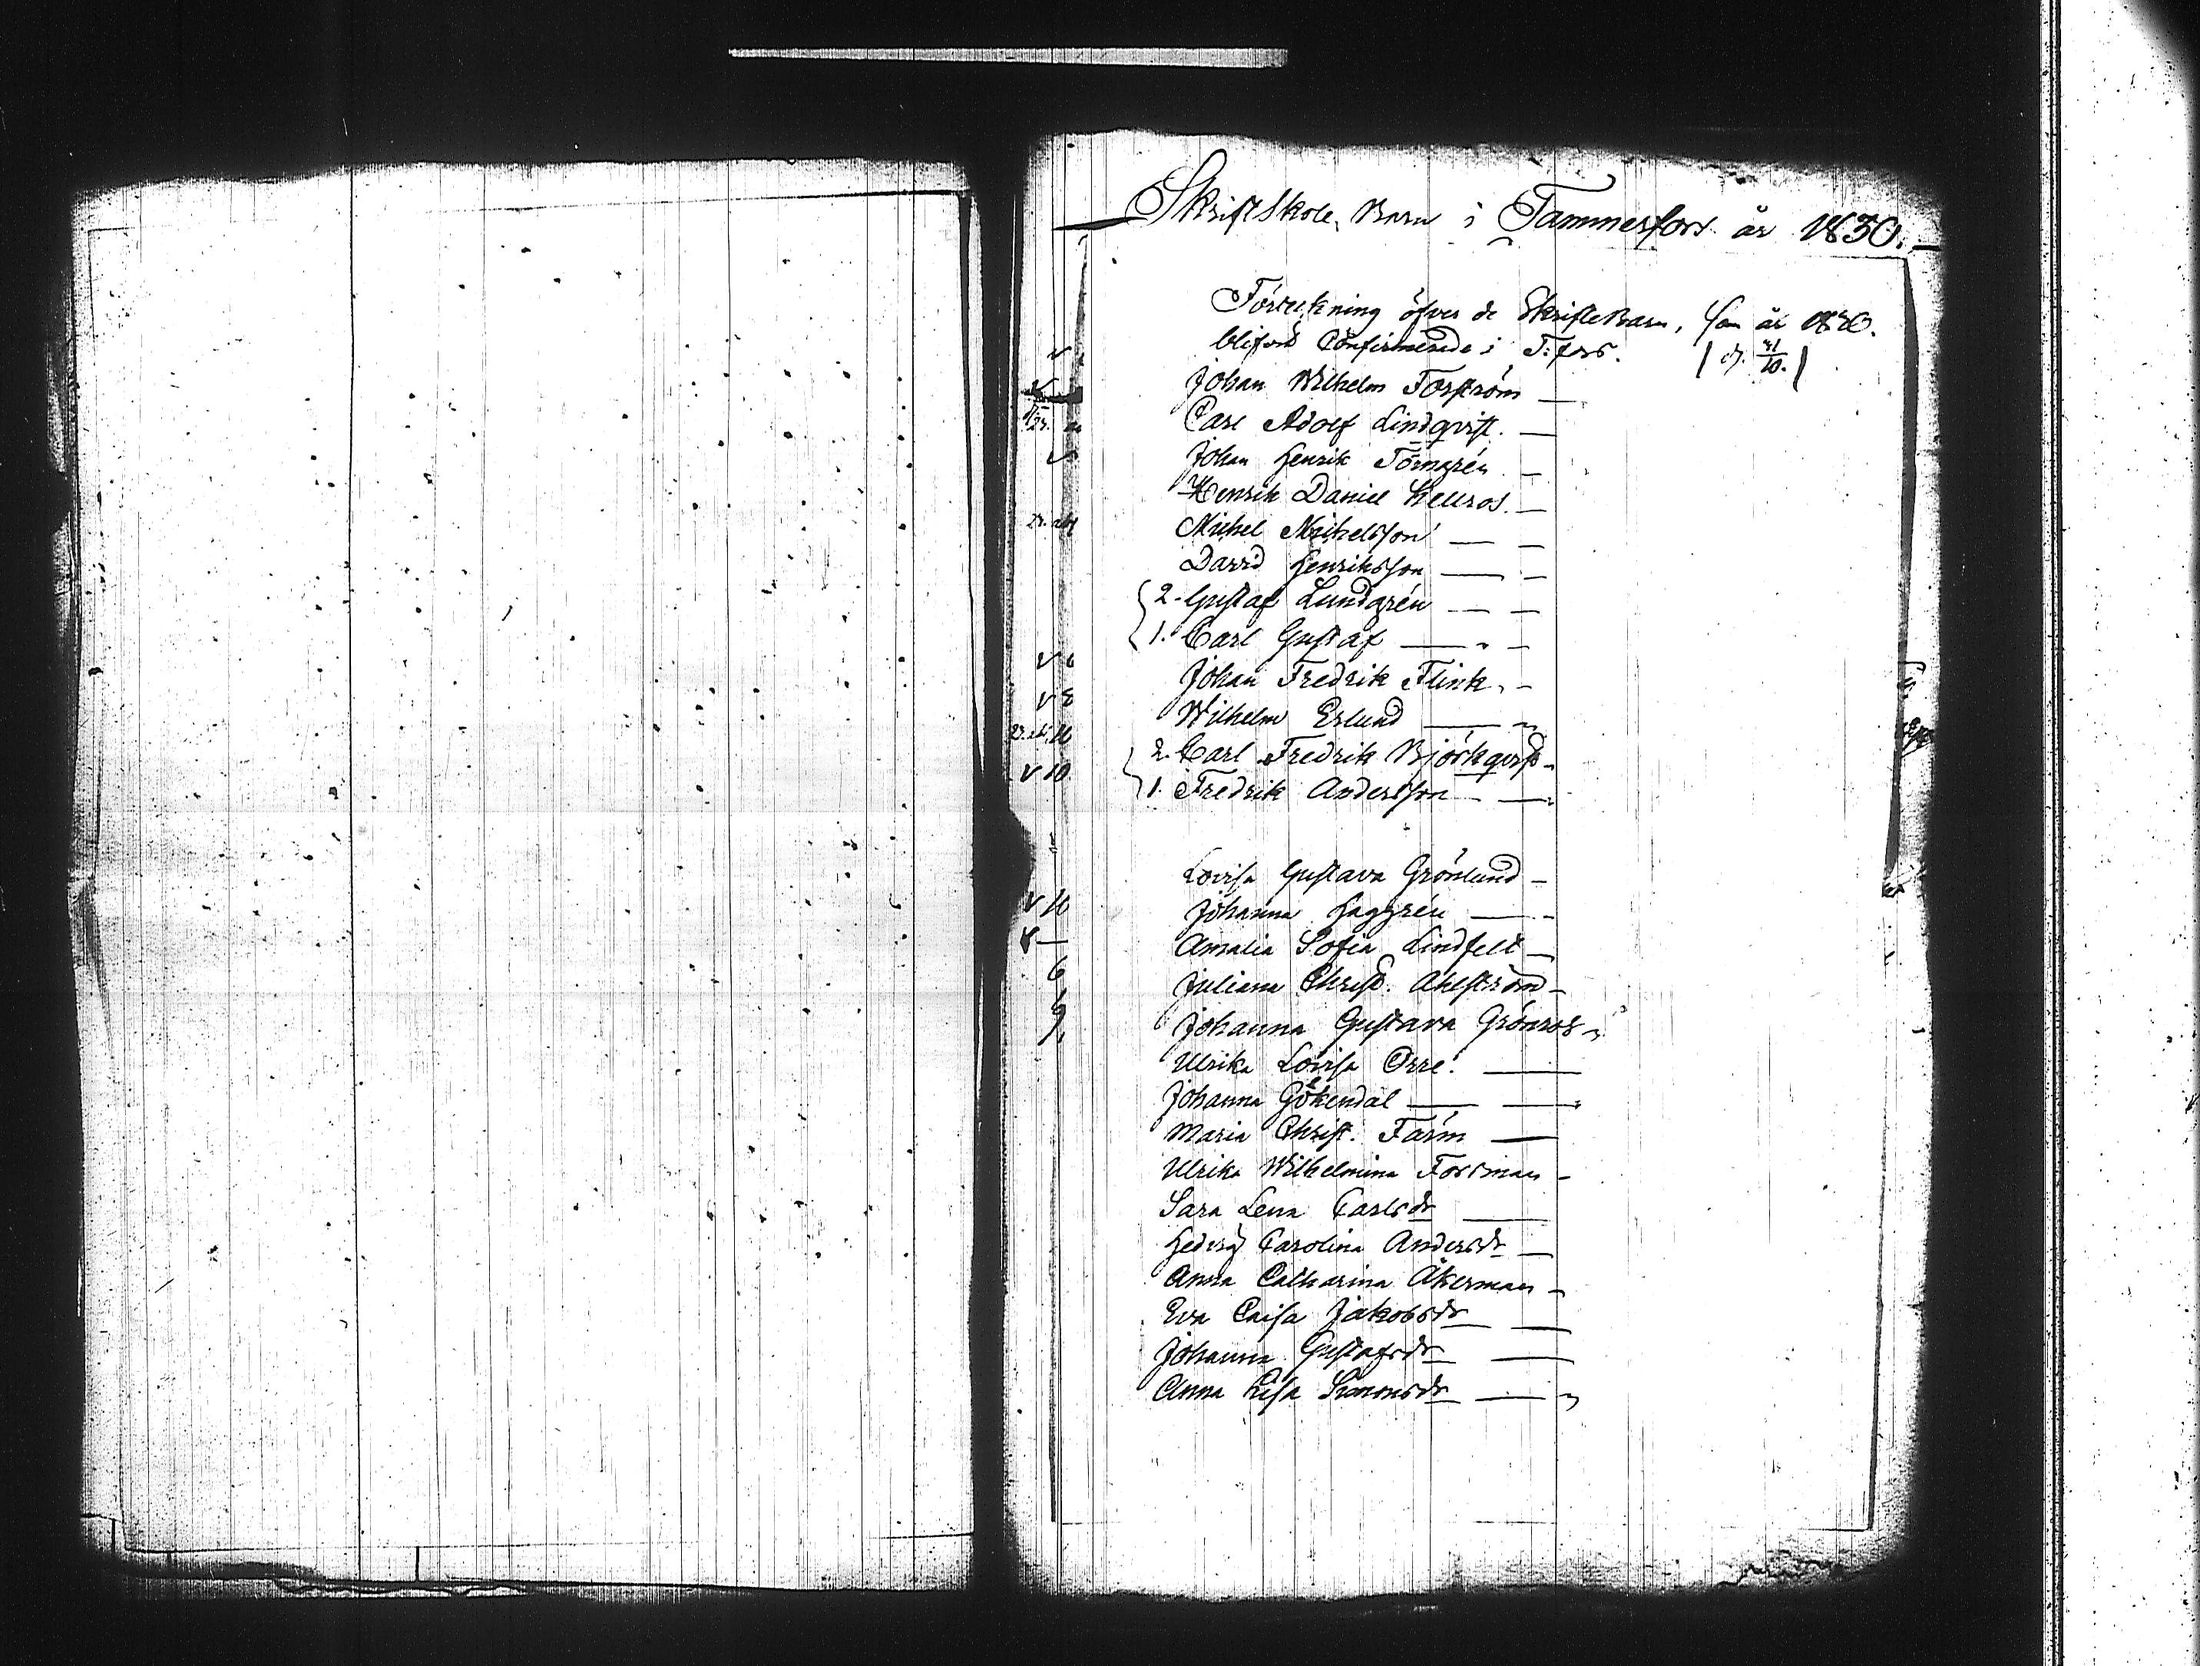 Skriftskole Barn i Tammerfors år 1830.
Förteckning öfver de Skriftebarn, som år 1830.
blifvit Confirmerade i T:fors. /d. 31/10./
Johan Wilhelm Forström —
Carl Adolf Lindqvist. —
Johan Henrik Törngrén —
Henrik Daniel Hellros. —
Michel Michelsson — —
David Henriksson — —
2. Gustaf Lundgrén — —
1. Carl Gustaf — " —
Johan Fredrik Flink. —
Wilhelm Erlund —
2. Carl Fredrik Björkqvist —
1. Fredrik Andersson — —
Lovisa Gustava Grönlund —
Johanna Haggrén —
Amalia Sofia Lindfelt —
Juliana Christ. Ahlström —
Johanna Gustava Grönros —
Ulrika Lovisa Orre. —
Johanna Gökendal — —
Maria Christ. Färm —
Ulrika Wilhelmina Forsman —
Sara Lena Carlsdr —
Hedvig Carolina Andersdr —
Anna Catharina Åkerman —
Eva Caisa Jakobsdr —
Johanna Gustafsdr —
Anna Lisa Simonsdr —